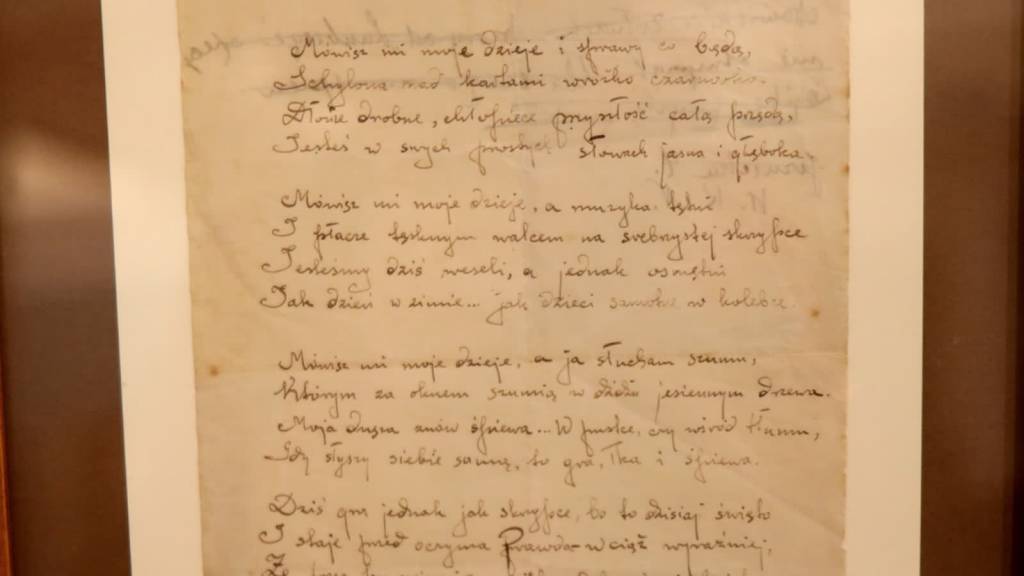 Mówisz mi moje dzieje i sprawy co będą,
Schylona nad kartami wróżko czarnooka.
Dłonie drobne, chłopięce myszłość całą przędą,
Jesteś w swych prostych słowach jasna i głęboka.
Mówisz mi moje dzieje, a muzyka tętni
I płacze tęsknym walcem na srebrzystej skrzypce
Jesteśmy dziś weseli, a jednak smętni
Jak dzień w zimie... jak dzieci samotne w kolebce.
Mówisz mi moje dzieje, a ja słucham szumu,
Którym za oknem szumią w dżdżu jesiennym drzewa.
Moja dusza znów śpiewa... W pustce, czy wśród tłumu,
Gdy słyszy siebie samą, to gra, łka i śpiewa.
Dziś gra jednak jak skrzypce, bo to dzisiaj święto
I staje przed oczyma Prawda wciąż wyraźniej,